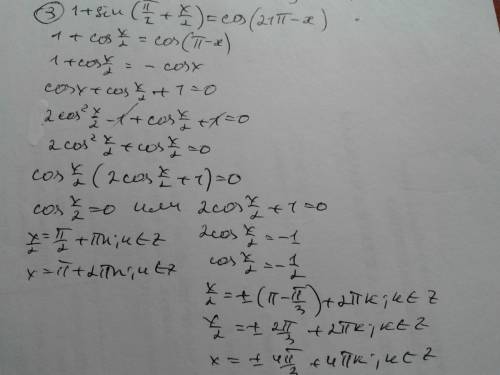 ③ 1+sin(π/2 + x/2)=cos(21π-x)
1+cos x/2 = cos(π-x)
1+cos x/2 = - cosx
cosx+cos x/2 +1=0
2cos² x/2 -1+cos x/2 +1=0
2cos² x/2 +cos x/2 =0
cos x/2 (2cos x/2 +1)=0
cos x/2 =0 или 2cos x/2 +1=0
x/2 = π/2 +πn; n∈Z 2cos x/2 =-1
x=π+2πn; n∈Z cos x/2 =- 1/2
x/2 = ±(π- π/3)+2πk; k∈Z
x/2 = ± 2π/3 +2πk; k∈Z
x= ± 4π/3 +4πk; k∈Z